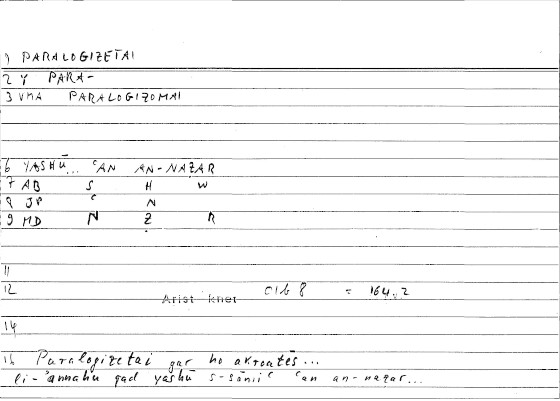 1 PARALOGIZETAI
2 Y PARA-
3 VMA PARALOGIZOMAI
6 YASHŪ... ʿAN AN-NAẒAR
7 AB S H W
8 JP ʿ N
9 MD N Ẓ R
11
12 Arist rhet 016 8 = 164,2
14
15 Paralogizetai gar ho akroatēs...
li-ʾannahu qad yashū s-sāmiʿ ʿan an-naẓar...